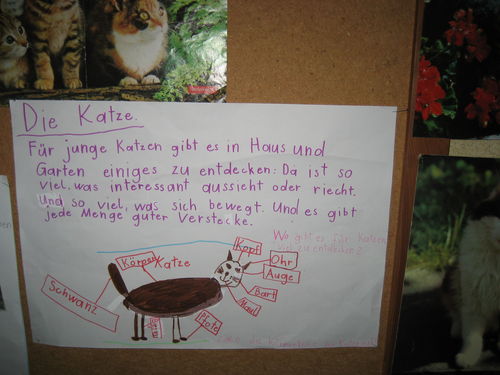 Die Katze.
Für junge Katzen gibt es in Haus und
Garten einiges zu entdecken: Da ist so
viel, was interessant aussieht oder riecht.
Und so viel, was sich bewegt. Und es gibt
jede Menge guter Verstecke.
Wo gibt es für Katzen
viel zu entdecken?
Kopf
Körper Katze
Ohr
Auge
Schwanz
Bart
Maul
Pfote